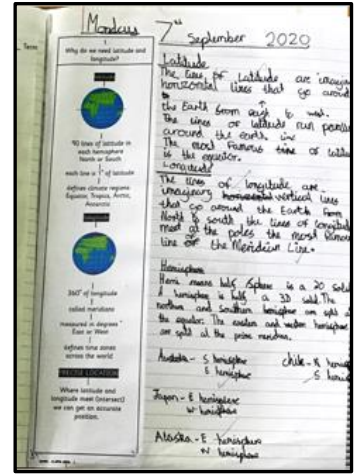 Monday 7th September 2020
Why do we need latitude and
longitude?
90 lines of latitude in
each hemisphere
North or South
each line is 1° of latitude
defines climate regions
Equator, Tropics, Arctic,
Antarctic
360° of longitude
called meridians
measured in degrees °
East or West
defines time zones
across the world
PRECISE LOCATION
Where latitude and
longitude meet (intersect)
we can get an accurate
position.
Latitude
The lines of Latitude are imaginary
horizontal lines that go around
the Earth from east to west.
The lines of latitude run
around the earth
The most famous line of
is the equator.
Longitude
The lines of longitude are
imaginary vertical lines
that go around the Earth from
North to south the lines of longitude
meet at the poles the most famous
line the Meridian Line.
Hemisphere
Hemi means half Sphere is a
A hemisphere is half a 3D The
northern and southern are split
the equator. The eastern and western
are split at the prime meridian.
Australia - S hemisphere
E hemisphere
chile -
S
Japan - E hemisphere
hemisphere
Alaska - hemisphere
W hemisphere